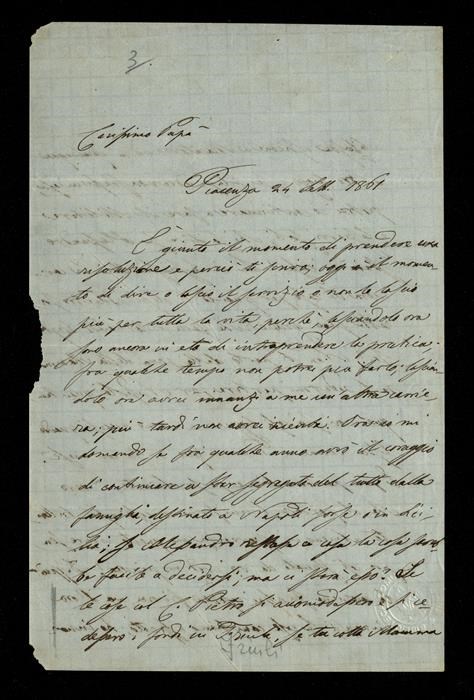 3.
Carissimo Papà
Piacenza 24 Sett. 1861
È giunto il momento di prendere una
risoluzione e perciò ti scrivo; oggi è il momen-
to di dire o lascio il servizio o non lo lascio
più per tutta la vita perchè, lasciandolo ora
sono ancora in età di intraprendere la pratica
fra qualche tempo non potrei più farlo: lascian-
dolo ora avrei innanzi a me un'altra carrie-
ra, più tardi non avrei niente. Ora io mi
domando se fra qualche anno avrò il coraggio
di continuare a star segregato del tutto dalla
famiglia, destinato a Napoli, forse in Sici-
lia; se Alessandro restasse a casa la cosa sareb-
be facile a decidersi; ma ci starà esso? Se
le cose col C. Pietro si accomodassero e si ce-
dessero i fondi in Friuli, se tu colla Mamma
Friuli